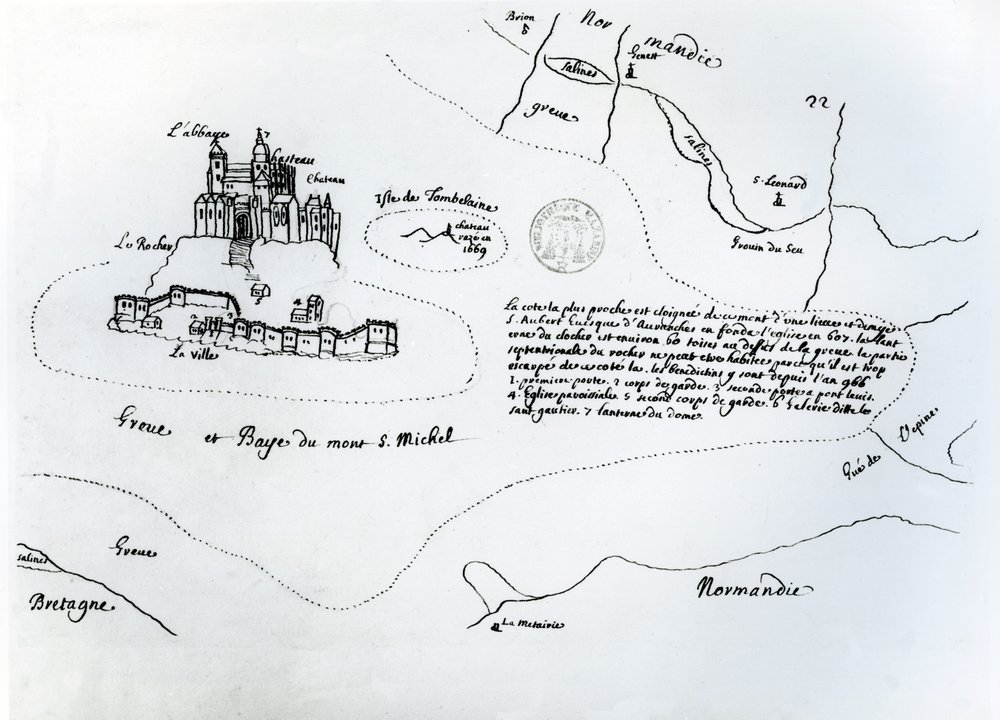 Brion
Nor
mandie
Genest
salines
greue
22
salines
S. Leonard
Grouin du Seu
L'abbaye
7
Chasteau
Chateau
Isle de Tombelaine
chateau
razé en
1669
Le Rocher
5
4
2
3
La Ville
La cote la plus proche est eloignée de ce mont d'une lieue et demye
S. Aubert Euesque d'Auranches en fonda l'eglise en 607. la lant
erne du clocher est enuiron 60 toises au dessus de la greue la partie
septentrionale du rocher ne peut etre habitée parce qu'il est trop
escarpé de ce coté la. les benedictins y sont depuis l'an 966
1. premiere porte. 2 corps de garde. 3 seconde porte a pont leuis.
4. Eglise paroissiale. 5 second corps de garde. 6 Galerie ditte le
saut gautier. 7 lanterne du dome.
Greue et Baye du mont S. Michel
Gué de l'epine
Greue
salines
Bretagne
Normandie
La Metairie